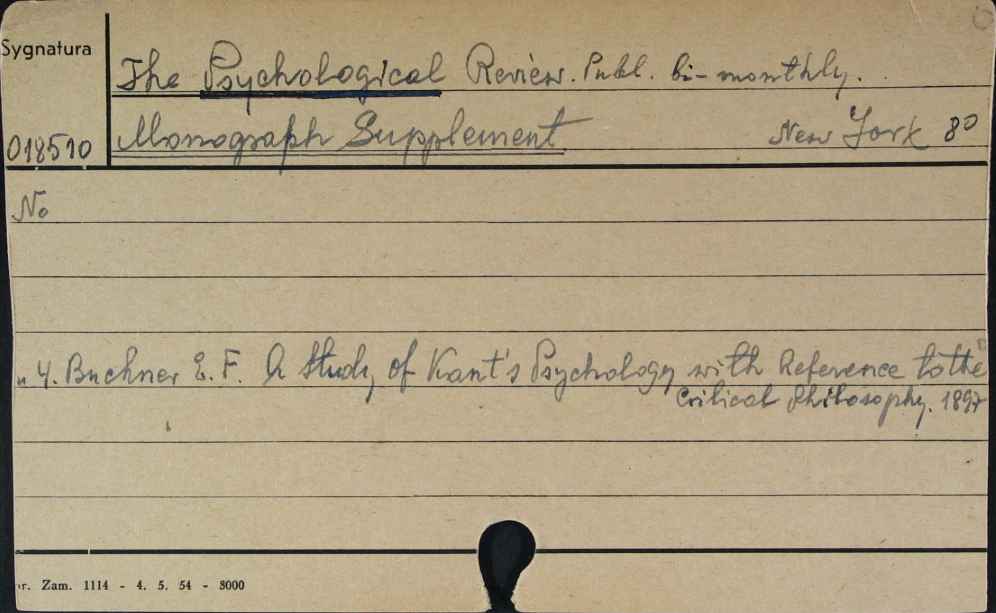 Sygnatura
The Psychological Review. Publ. bi-monthly.
018510 Monograph Supplement New York 8º
No
„ 4. Buchner E. F. A Study of Kant's Psychology with Reference to the
Critical Philosophy. 1897
r. Zam. 1114 - 4. 5. 54 - 3000